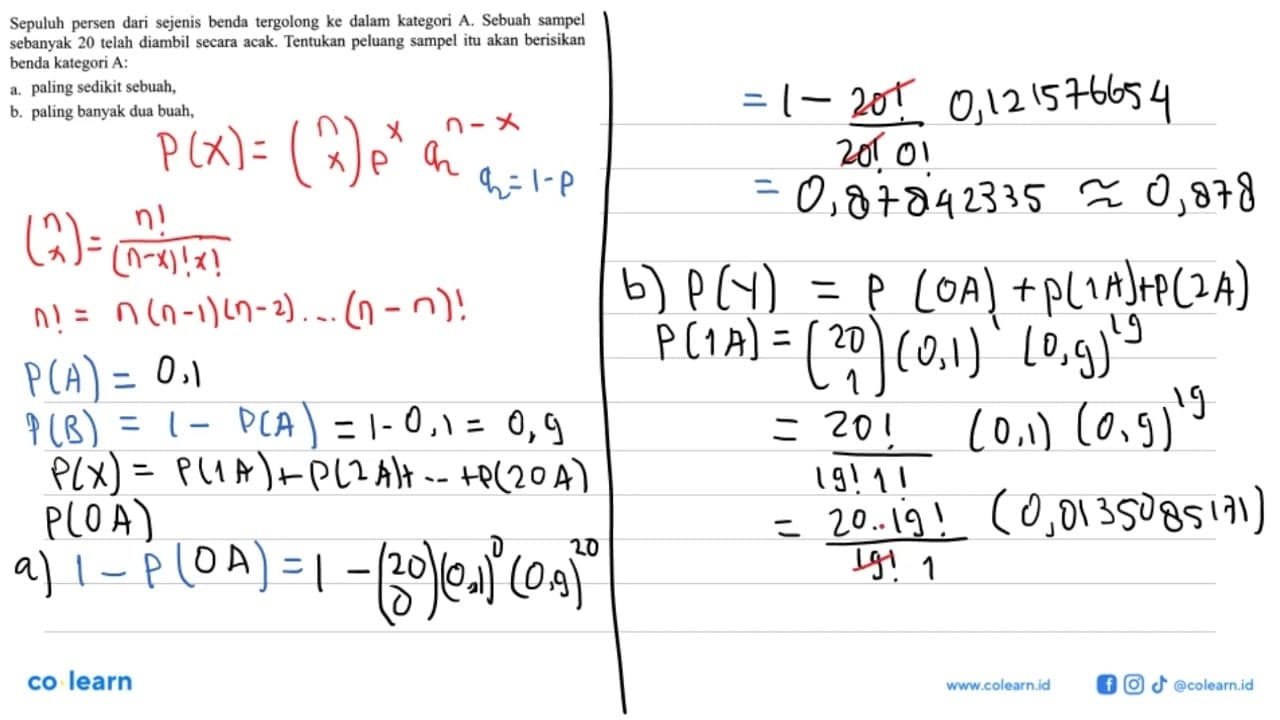 Sepuluh persen dari sejenis benda tergolong ke dalam kategori A. Sebuah sampel
sebanyak 20 telah diambil secara acak. Tentukan peluang sampel itu akan berisikan
benda kategori A:
a. paling sedikit sebuah,
b. paling banyak dua buah,
P(X) = (n x) p^x q^(n-x)
q = 1-p
(n x) = n! / (n-x)! x!
n! = n(n-1)(n-2)...(n-n)!
P(A) = 0,1
P(B) = 1 - P(A) = 1-0,1 = 0,9
P(X) = P(1A)+P(2A)+ -- +P(20A)
P(0A)
a) 1 - P(0A) = 1 - (20 0)(0,1)^0 (0,9)^20
= 1 - 20! / 20! 0! 0,121576654
= 0,87842335 ≈ 0,878
b) P(Y) = P(0A)+P(1A)+P(2A)
P(1A) = (20 1)(0,1)^1 (0,9)^19
= 20! / 19! 1! (0,1) (0,9)^19
= 20..19! / 19! 1 (0,0135085171)
co·learn
www.colearn.id
@colearn.id